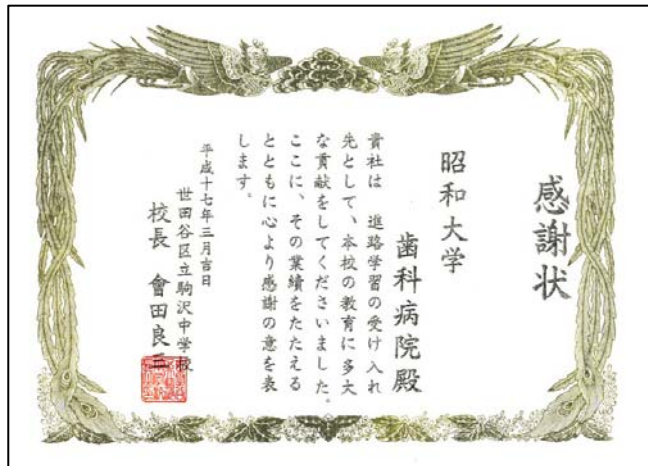 感謝状
昭和大学
歯科病院殿
貴社は　進路学習の受け入れ
先として、本校の教育に多大
な貢献をしてくださいました。
ここに、その業績をたたえる
とともに心より感謝の意を表
します。
平成十七年三月吉日
世田谷区立駒沢中学校
校長　會田良三